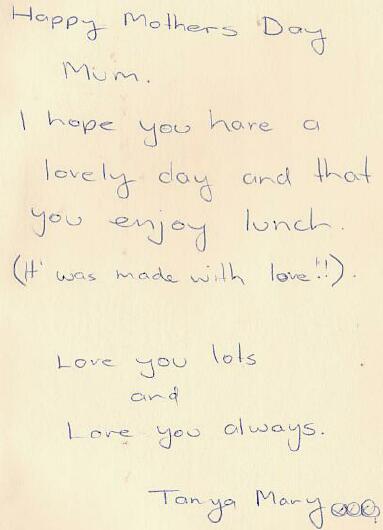 Happy Mothers Day
Mum.
I hope you have a
lovely day and that
you enjoy lunch.
(It was made with love!!).
Love you lots
and
Love you always.
Tanya Mary